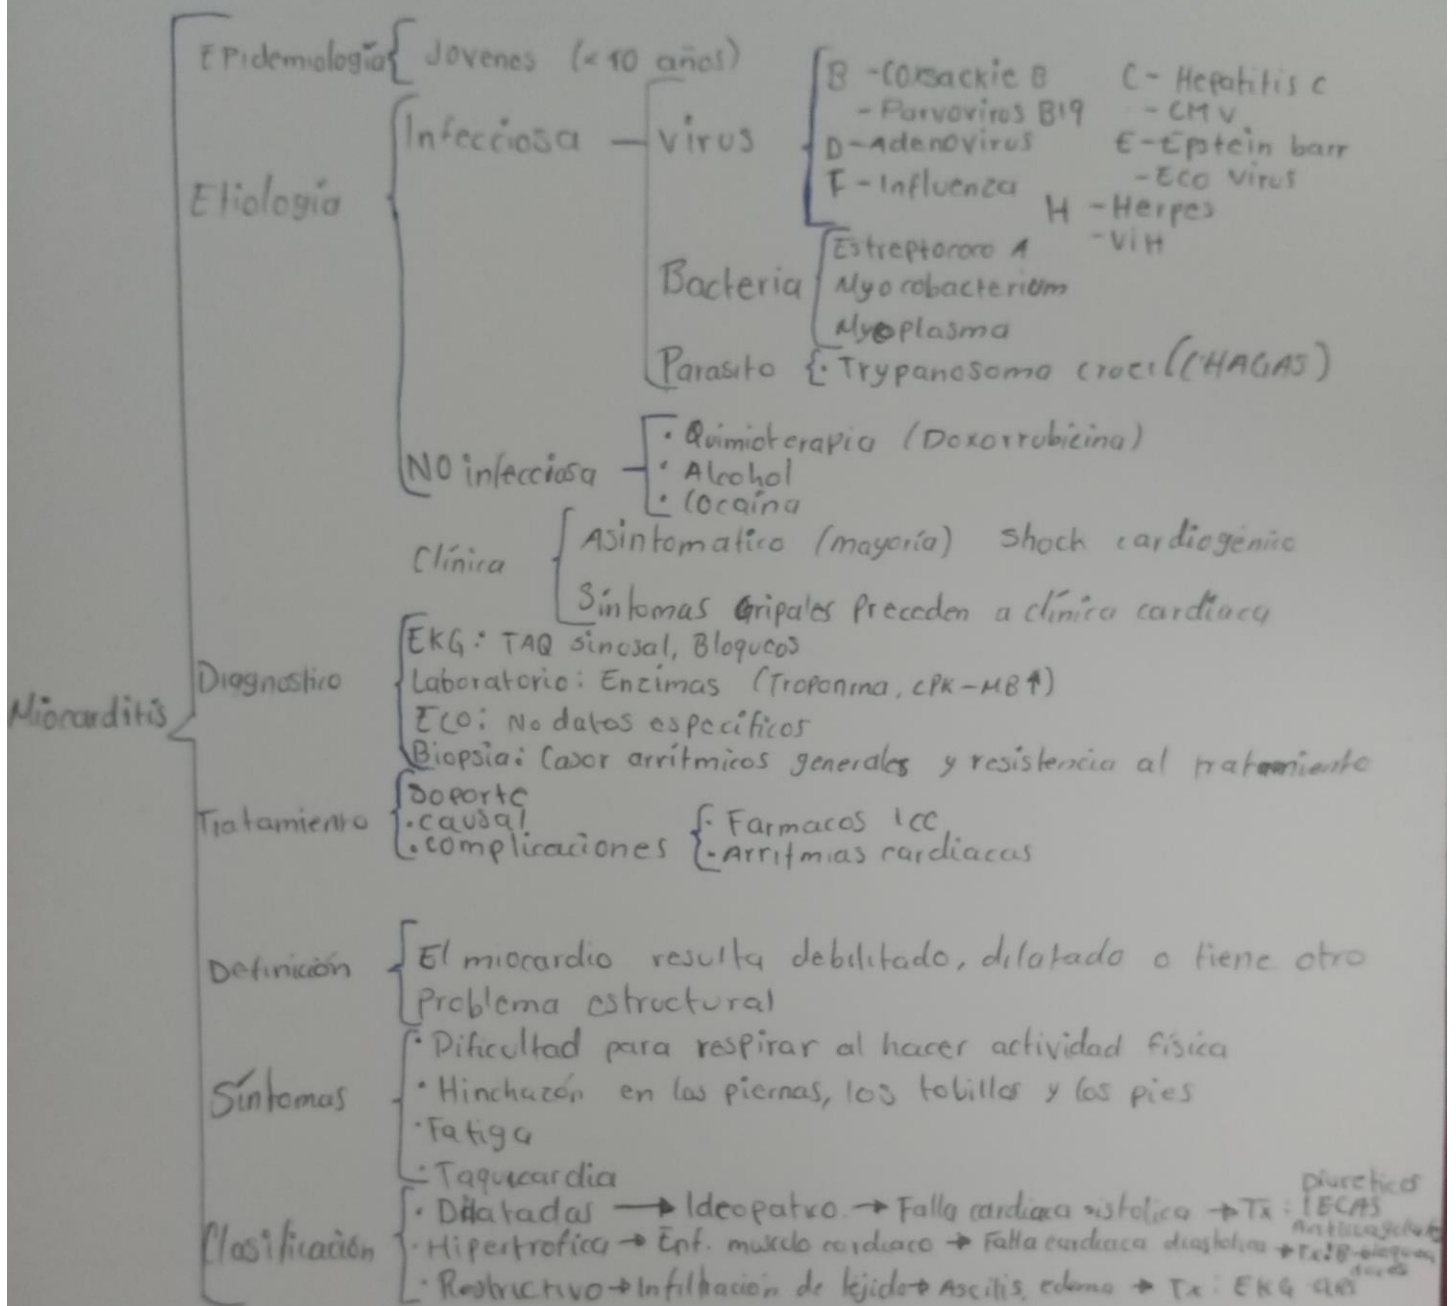 Epidemiología Jovenes (<40 años)
Etiología
Infecciosa
Virus
B - Coxsackie B
- Parvovirus B19
D - Adenovirus
F - Influenza
C - Hepatitis C
- CMV
E - Epstein barr
- Eco virus
H - Herpes
- VIH
Bacteria
Estreptococo A
Myocobacterium
Myoplasma
Parasito · Trypanosoma cruci (CHAGAS)
NO infecciosa
· Quimioterapia (Doxorrubicina)
· Alcohol
· Cocaína
Clínica
Asintomatico (mayoría) Shock cardiogénico
Síntomas Gripales Preceden a clínica cardíaca
Miocarditis
Diagnostico
EKG: TAQ sinosal, Bloqueos
Laboratorio: Enzimas (Troponina, CPK-MB↑)
ECO: No datos específicos
Biopsia: Casor arrítmicos generales y resistencia al tratamiento
Tratamiento
Soporte
· causal
· complicaciones
· Farmacos ICC
· Arritmias cardiacas
Definición
El miocardio resulta debilitado, dilatado o tiene otro
problema estructural
Síntomas
· Dificultad para respirar al hacer actividad física
· Hinchazón en las piernas, los tobillos y los pies
· Fatiga
· Taquicardia
Clasificación
· Dilatadas → Ideopatico → Falla cardiaca sistolica → Tx: Diureticos
IECAS
· Hipertrofica → Enf. musculo cardiaco → Falla cardiaca diastolica → Tx: B-bloqueadores
· Restrictivo → Infiltración de tejido → Ascitis, edema → Tx: EKG